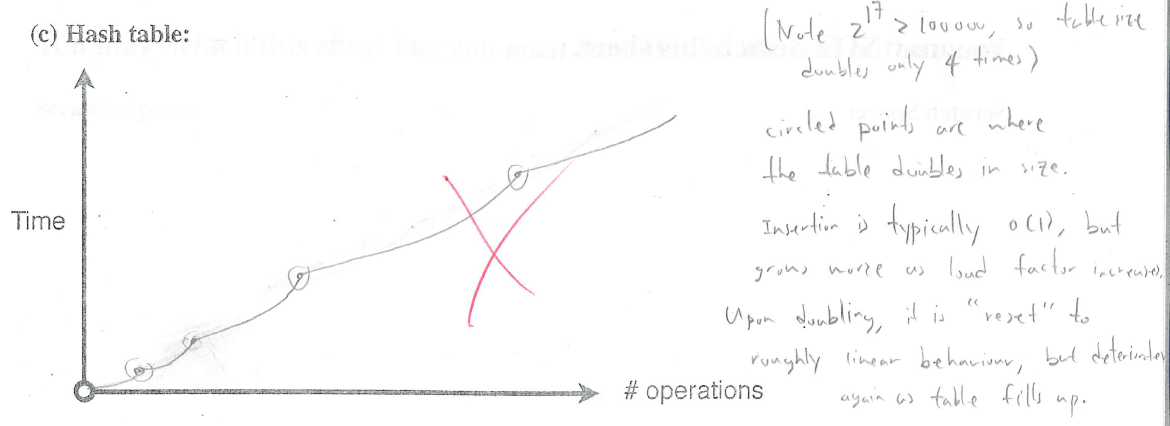 (c) Hash table:
(Note 2^17 ≥ 100000, so table size
doubles only 4 times)
circled points are where
the table doubles in size.
Time
Insertion is typically O(1), but
grows worse as load factor increases.
Upon doubling, it is "reset" to
roughly linear behaviour, but deteriorates
again as table fills up.
# operations